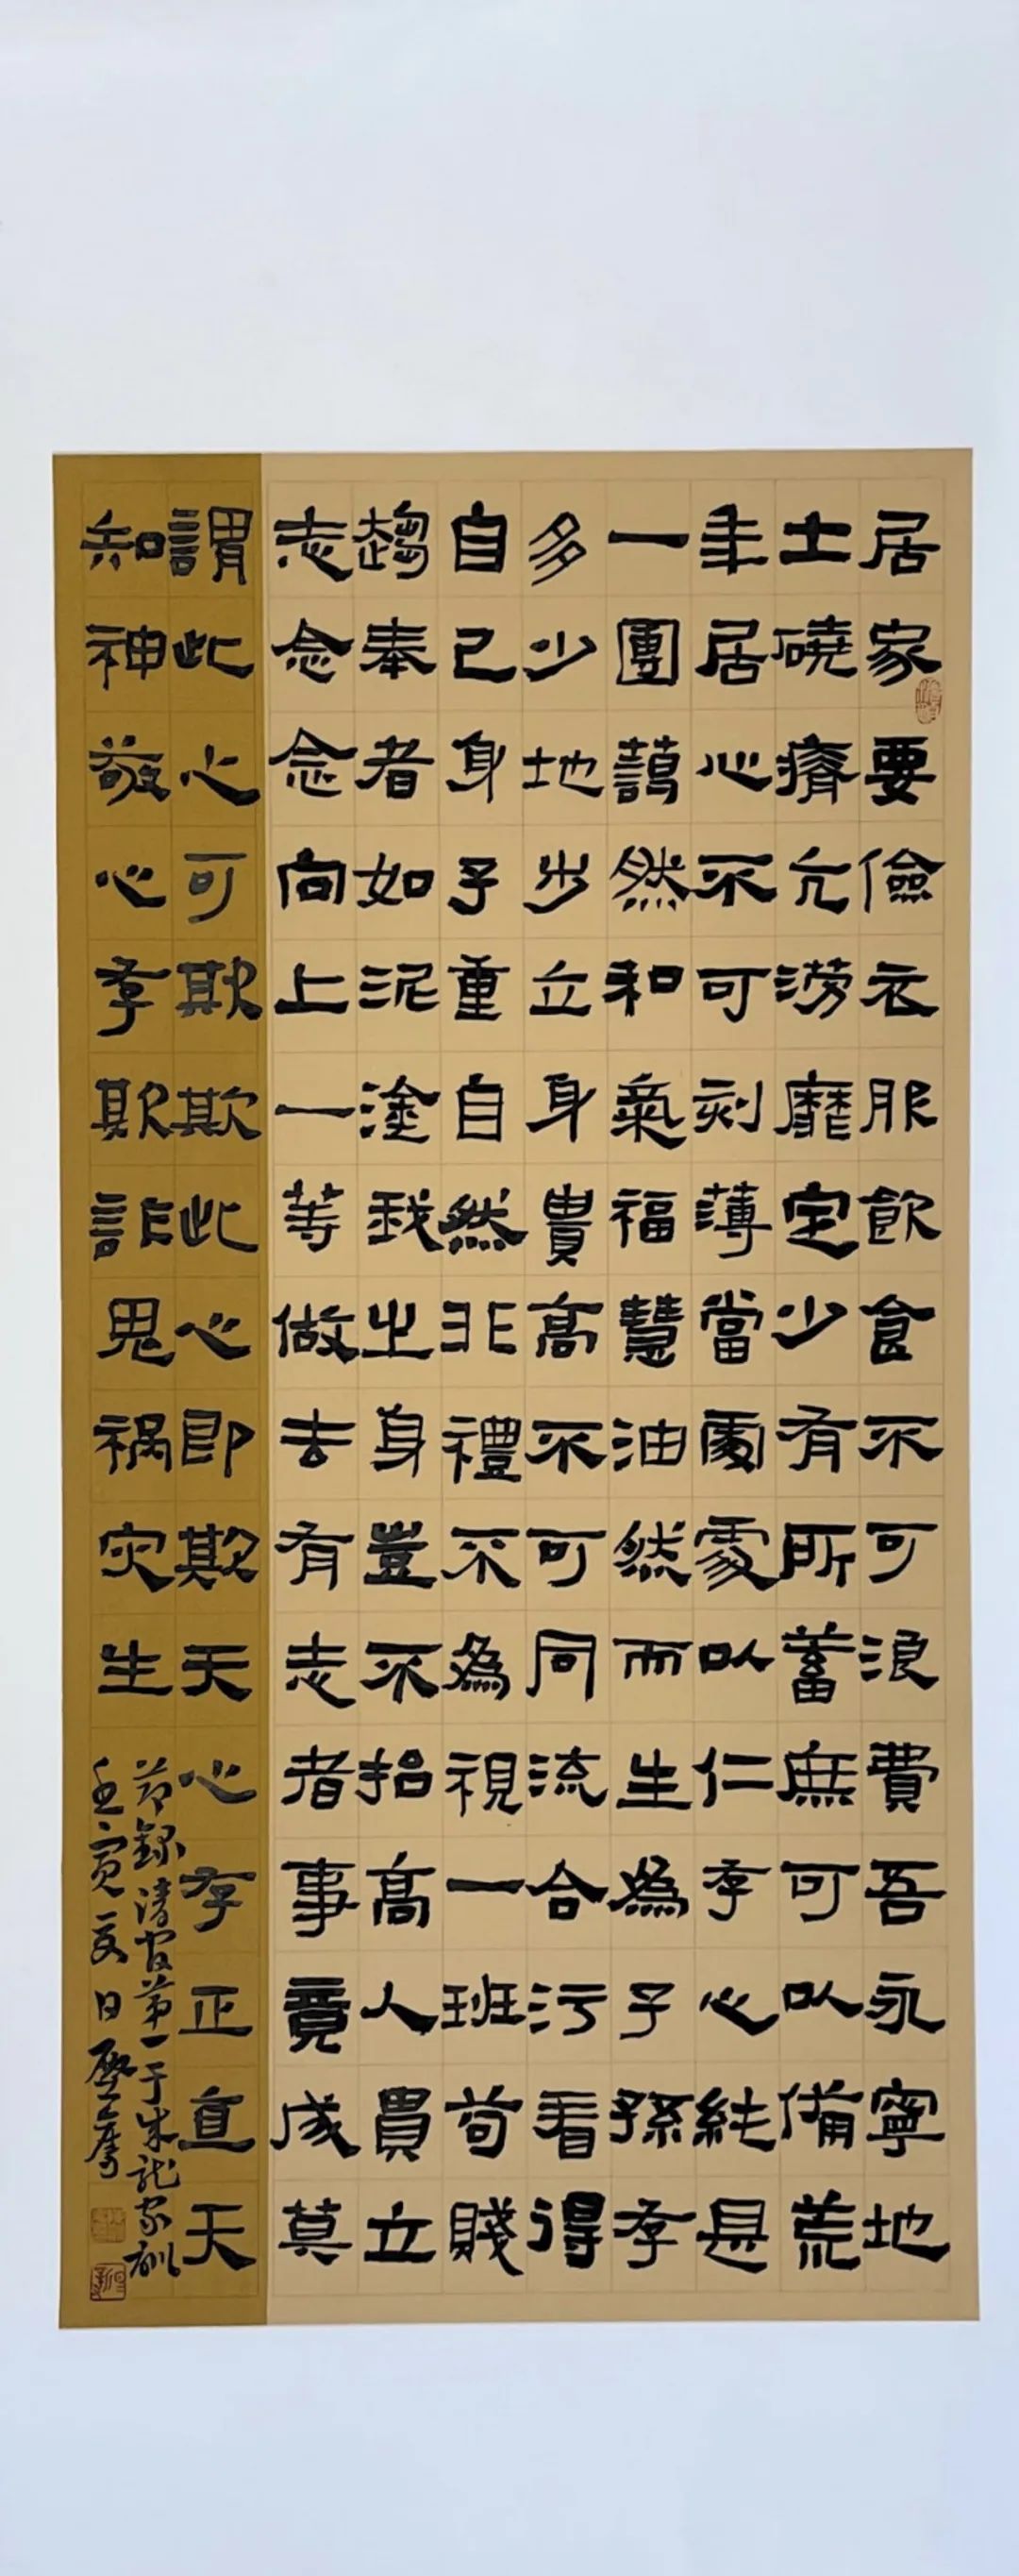 居家要儉衣服飲食不可浪費吾永寧地
土磽瘠亢澇靡定少有所蓄無可以備荒
年居心不可刻薄當處處以仁存心純是
一團藹然和氣福慧油然而生為子孫存
多少地步立身貴高不可同流合污看得
自己身子重自然非禮不為視一班苟賤
趨奉者如泥塗我之身豈不抬高人貴立
志念念向上一等做去有志者事竟成莫
謂此心可欺欺此心即欺天心存正直天
知神敬心存欺詐鬼禍災生
節錄清官第一于成龍家訓
壬寅夏日